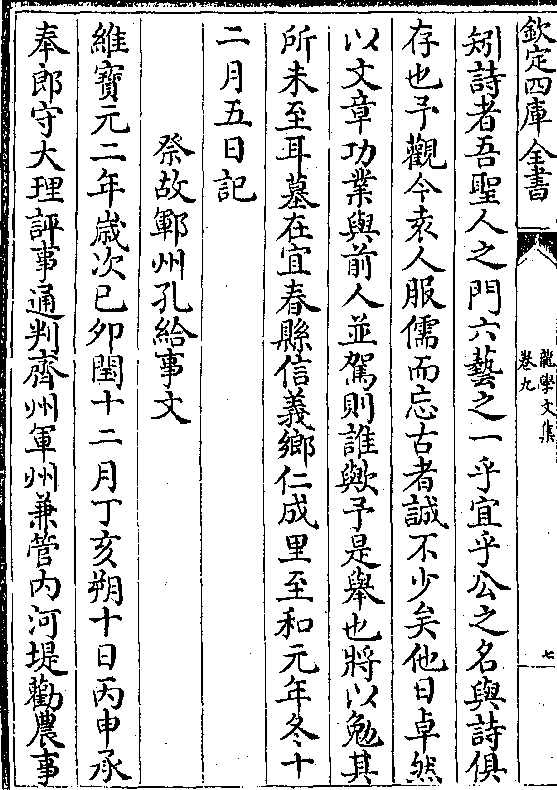 欽定四庫全書
龍學文集
卷九
七
矧詩者吾聖人之門六藝之一乎宜乎公之名與詩俱
存也予觀今袁人服儒而忘古者誠不少矣他日卓然
以文章功業與前人並駕則誰歟予是舉也將以勉其
所未至耳墓在宜春縣信義鄉仁成里至和元年冬十
二月五日記
祭故鄆州孔給事文
維寶元二年歲次己卯閏十二月丁亥朔十日丙申承
奉郎守大理評事通判齊州軍州兼管內河堤勸農事